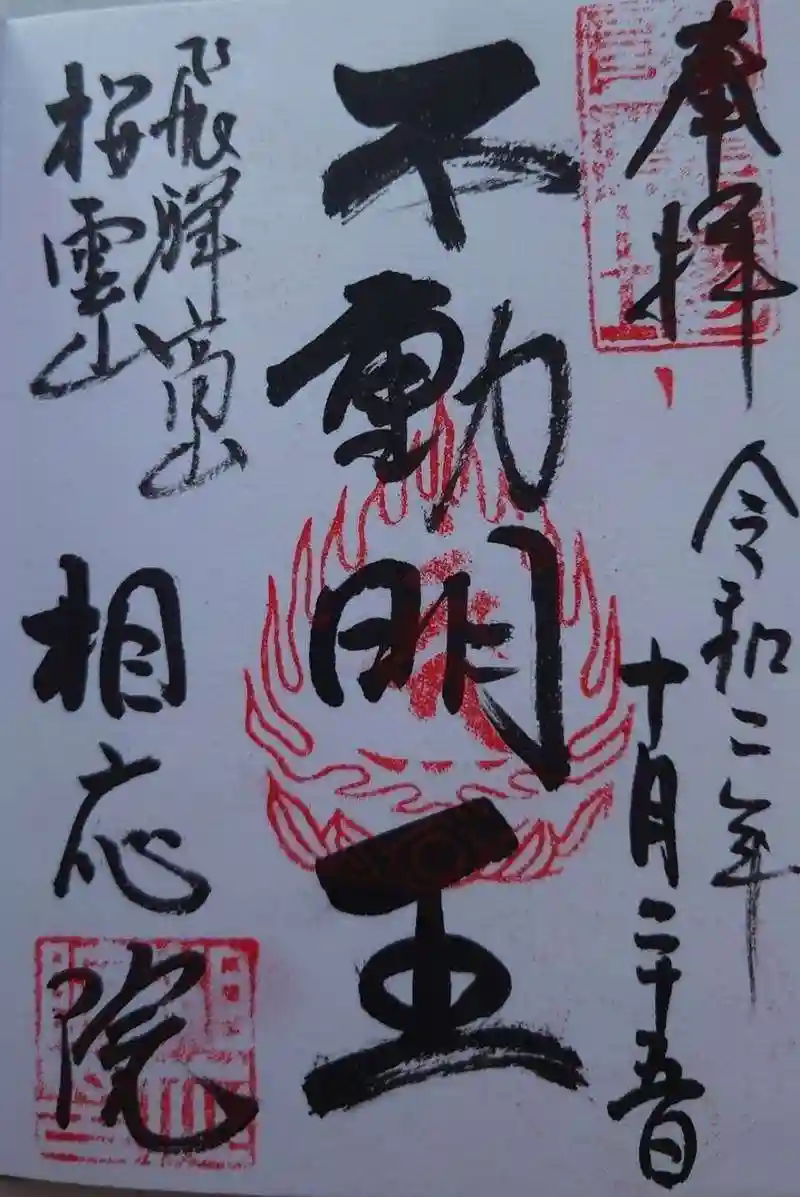 奉拝
令和二年
十月二十五日
不動明王
飛騨高山
桜雲山
相応院